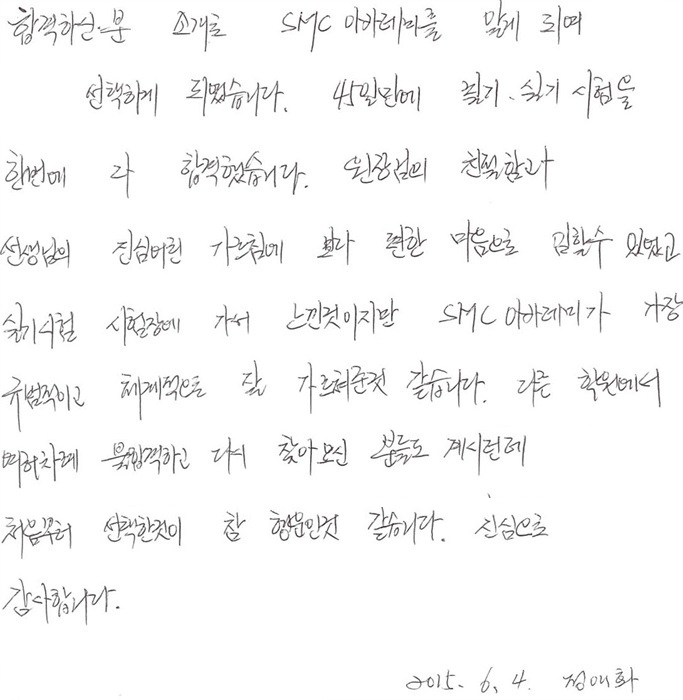 합격하신 분 소개로 SMC 아카데미를 알게 되며
선택하게 되었습니다. 45일만에 필기. 실기 시험을
한번에 다 합격했습니다. 원장님의 친절함과
선생님의 진심어린 가르침에 보다 편한 마음으로 임할수 있었고
실기시험 시험장에 가서 느낀것이지만 SMC 아카데미가 가장
규범적이고 체계적으로 잘 가르쳐준것 같습니다. 다른 학원에서
여러차례 불합격하고 다시 찾아오신 분들도 계시던데
처음부터 선택한것이 참 행운인것 같습니다. 진심으로
감사합니다.
2015. 6. 4. 정애화